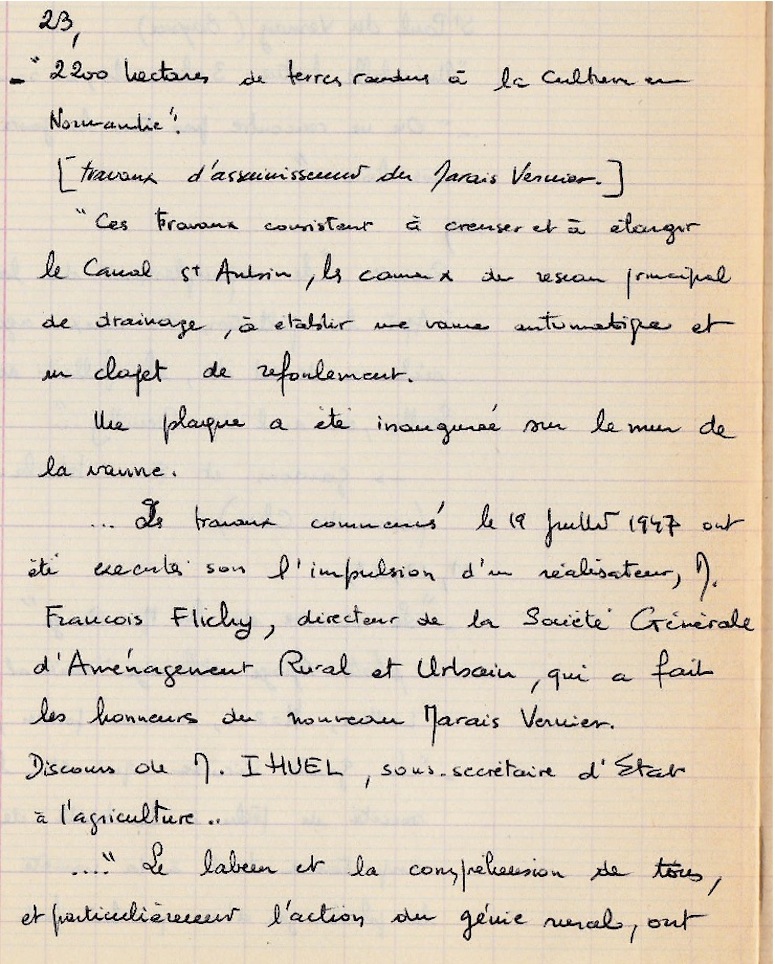 23,
- "2200 hectares de terres rendus à la culture en
Normandie".
[travaux d'assainissement du Marais Vernier.]
"Ces travaux consistent à creuser et à élargir
le Canal St Aubin, les canaux du reseau principal
de drainage, à etablir une vanne automatique et
un clapet de refoulement.
Une plaque a été inaugurée sur le mur de
la vanne.
... Les travaux commencés le 19 Juillet 1947 ont
été executés sous l'impulsion d'un réalisateur, M.
Francois Flichy, directeur de la Société Générale
d'Aménagement Rural et Urbain, qui a fait
les honneurs du nouveau Marais Vernier.
Discours de M. IHUEL, sous-secrétaire d'Etat
à l'agriculture..
...." Le labeur et la compréhension de tous,
et particulièrement l'action du génie rural, ont